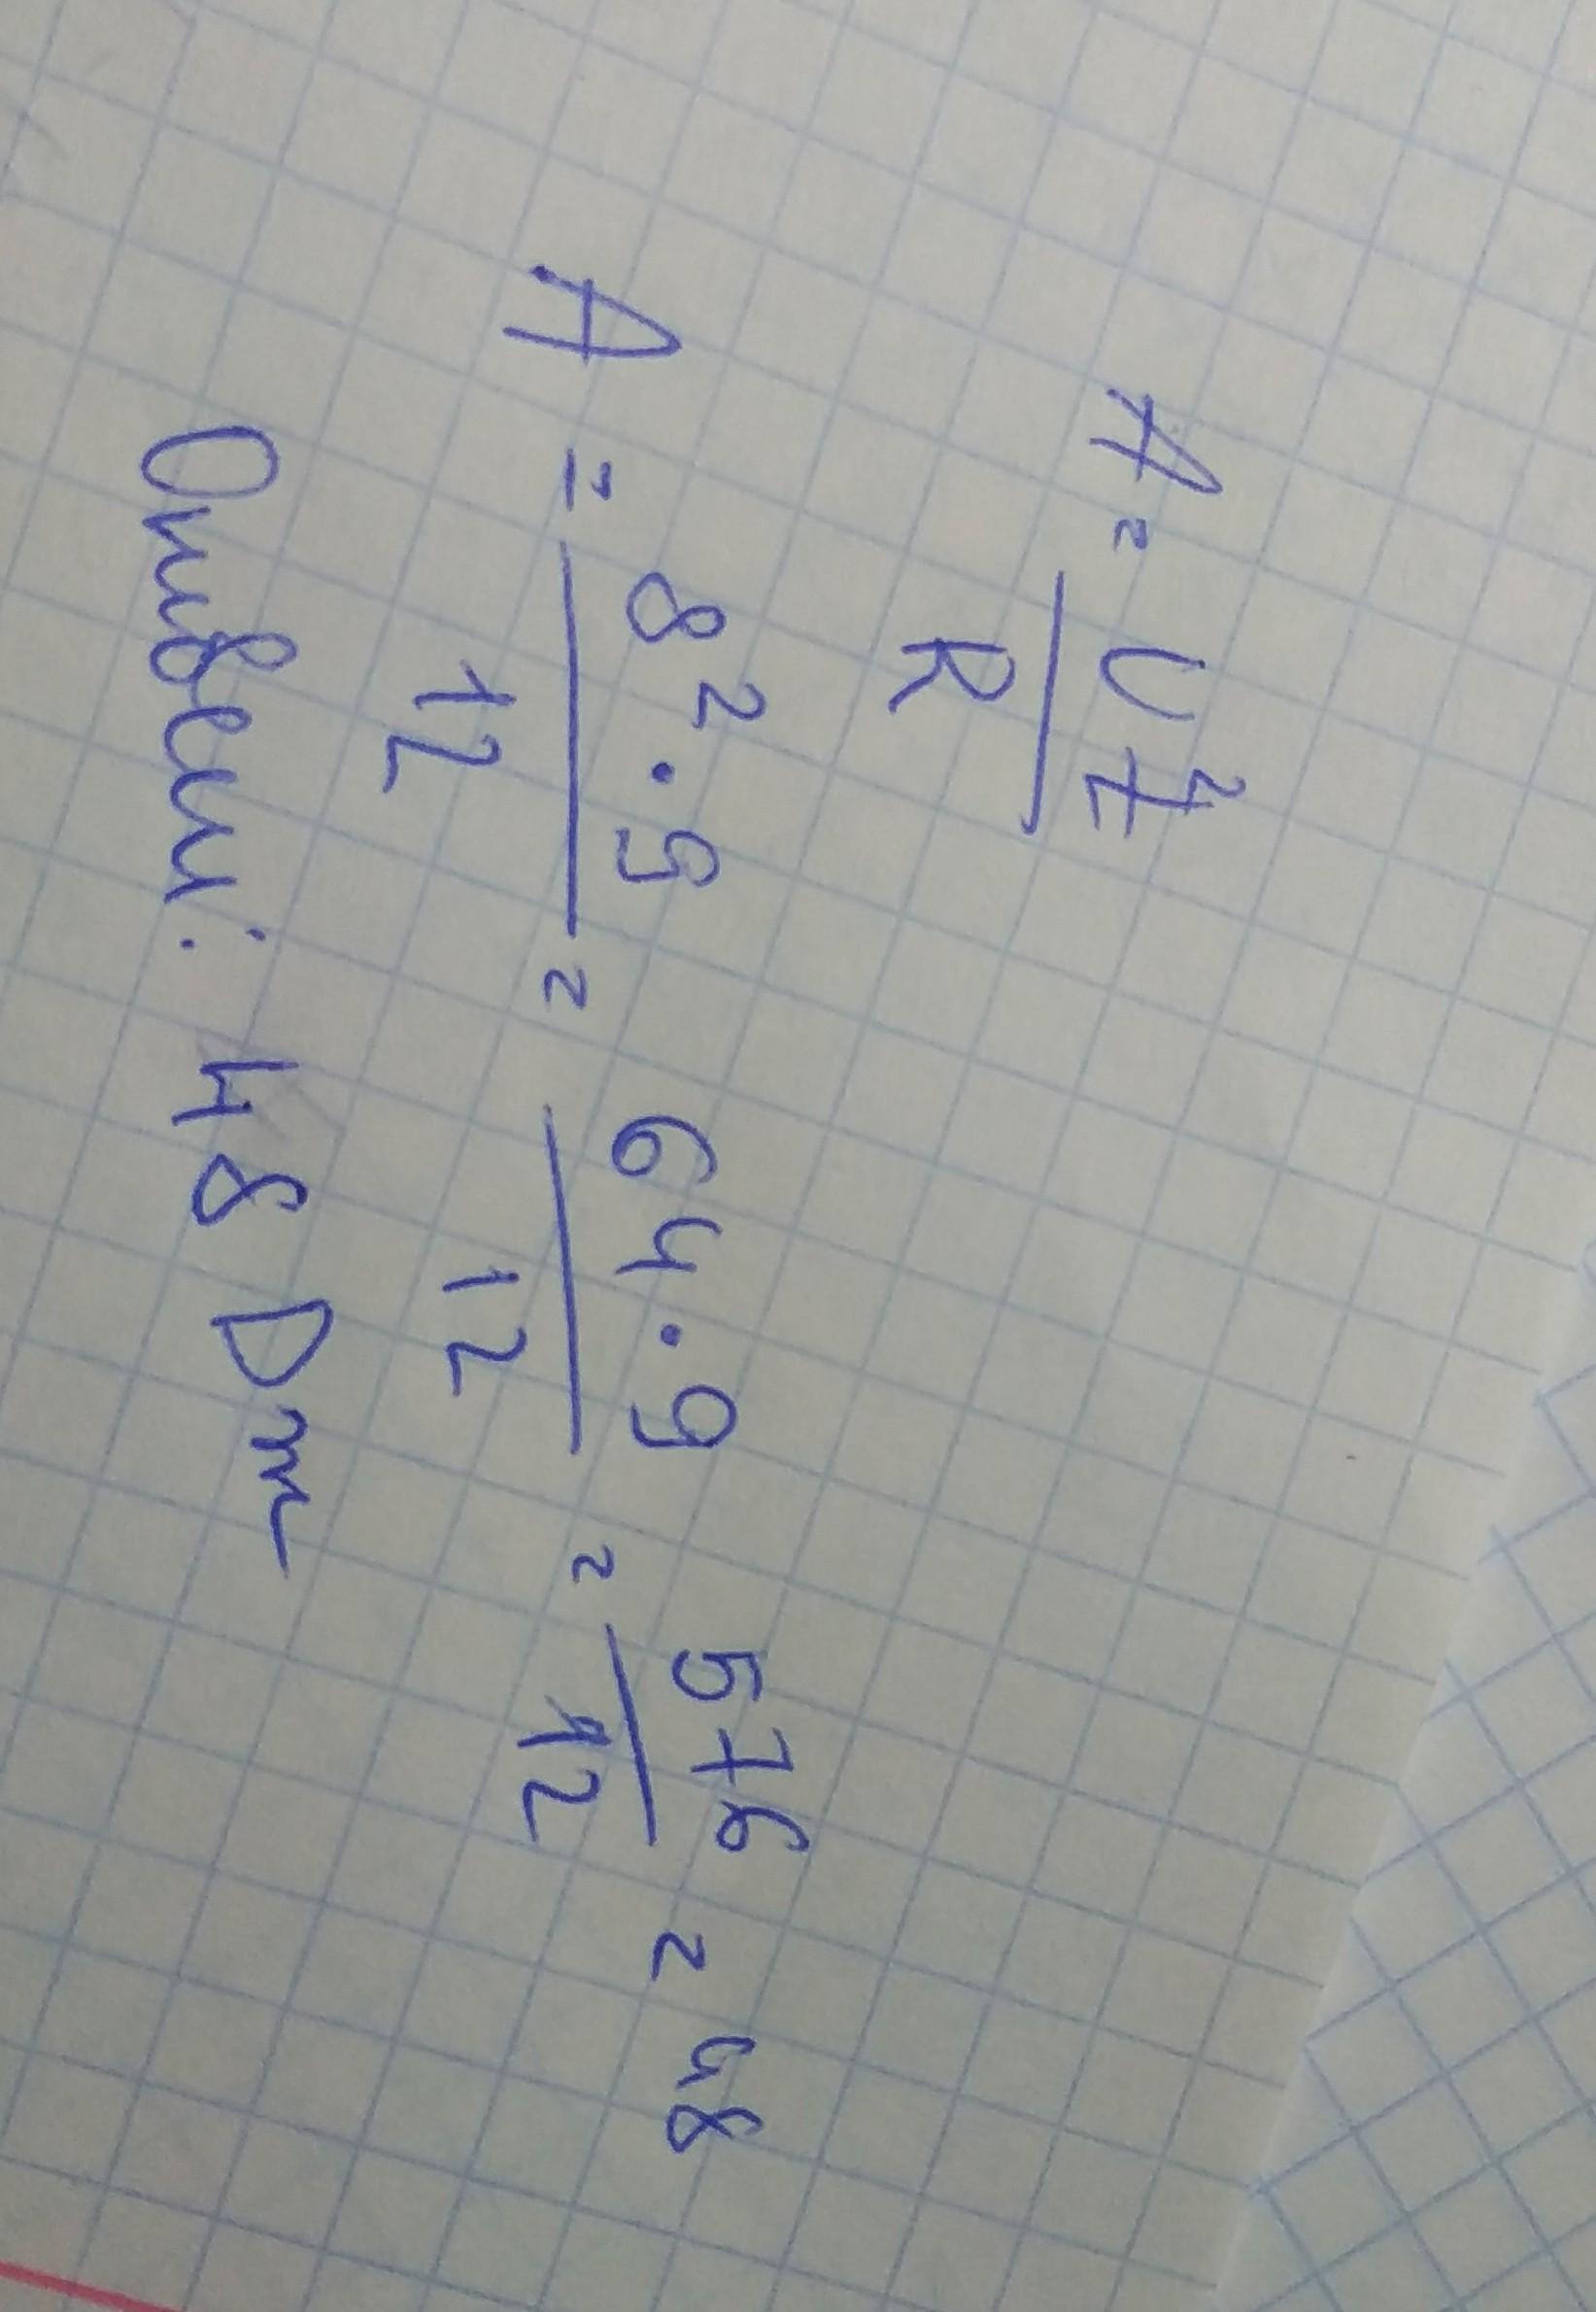 A = U²t / R
A = 8²·9 / 12 = 64·9 / 12 = 576 / 12 = 48
Ответ: 48 Дж